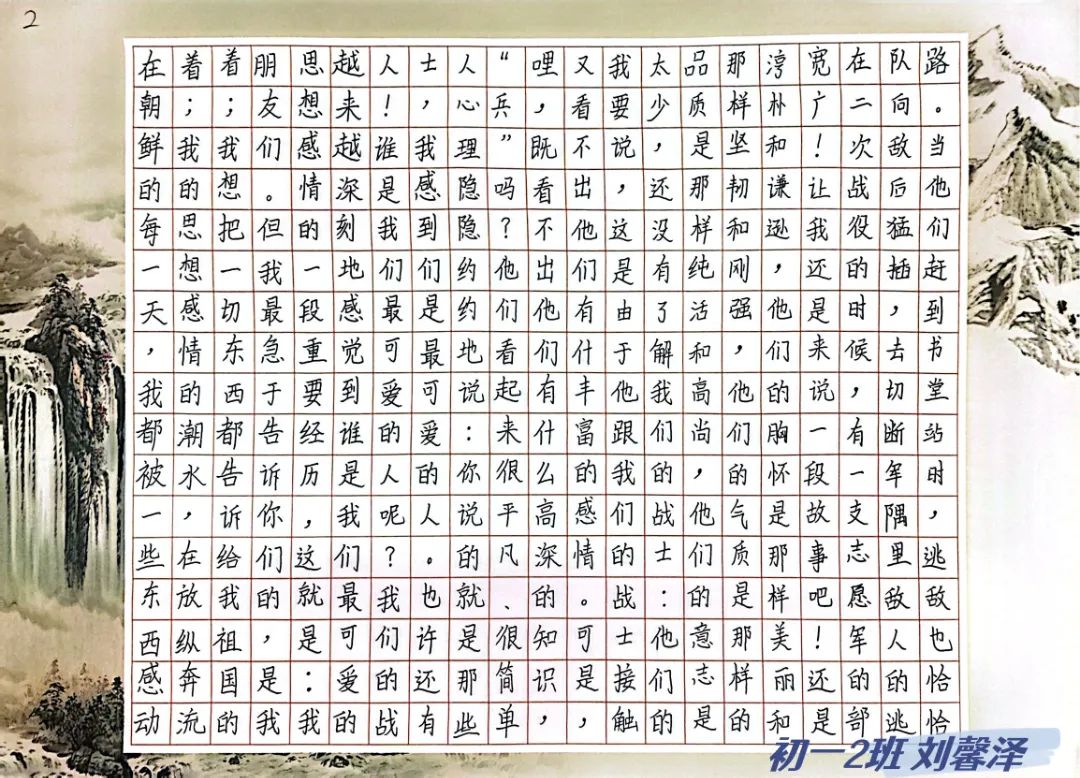 2
在朝鲜的每一天，我都被一些东西感动
着；我的思想感情的潮水，在放纵奔流
着；我想把一切东西都告诉给我祖国的
朋友们。但我最急于告诉你们的，是我
思想感情的一段重要经历，这就是：我
越来越深刻地感觉到谁是我们最可爱的
人！谁是我们最可爱的人呢？我们的战
士，我感到们是最可爱的人。也许还有
人心理隐隐约约地说：你说的就是那些
“兵”吗？他们看起来很平凡、很简单
哩，既看不出他们有什么高深的知识，
又看不出他们有什丰富的感情。可是，
我要说，这是由于他跟我们的战士接触
太少，还没有了解我们的战士：他们的
品质是那样纯活和高尚，他们的意志是
那样坚韧和刚强，他们的气质是那样的
淳朴和谦逊，他们的胸怀是那样美丽和
宽广！让我还是来说一段故事吧！还是
在二次战役的时候，有一支志愿军的部
队向敌后猛插，去切断军隅里敌人的逃
路。当他们赶到书堂站时，逃敌也恰恰
初一2班 刘馨泽